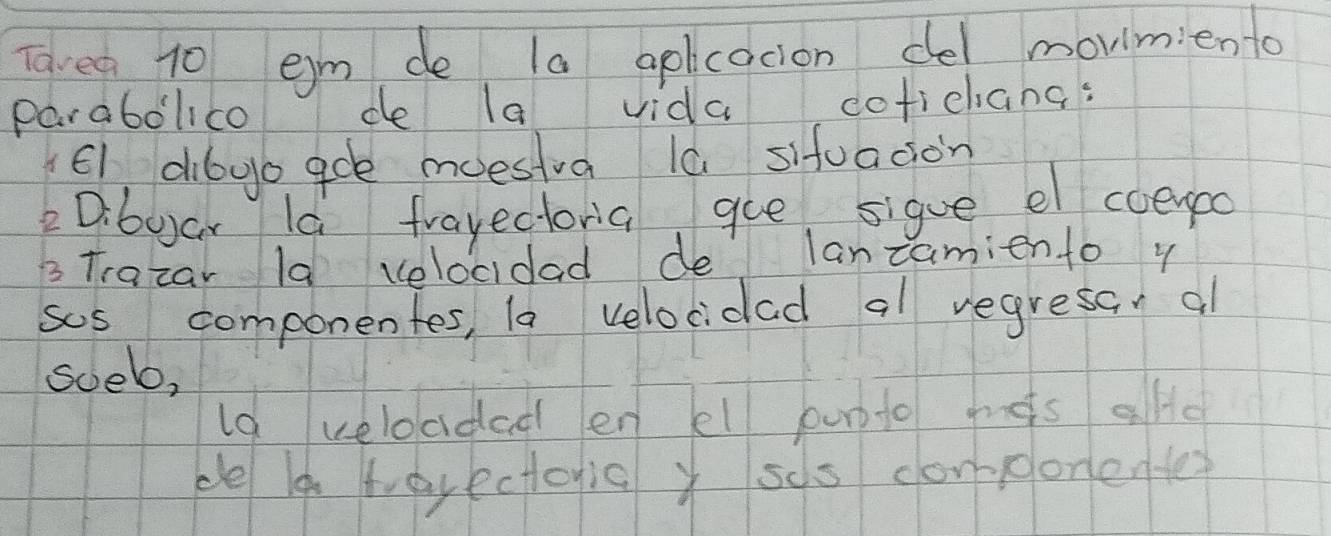 Tarea 10 ejm de la aplicacion del movimiento
parabólico de la vida cotidiana:
1 El dibujo que muestra la situación
2 Dibujar la trayectoria que sigue el cuerpo
3 Trazar la velocidad de lanzamiento y
sus componentes, la velocidad al regresar al
suelo,
la velocidad en el punto más alto
de la trayectoria y sus componentes